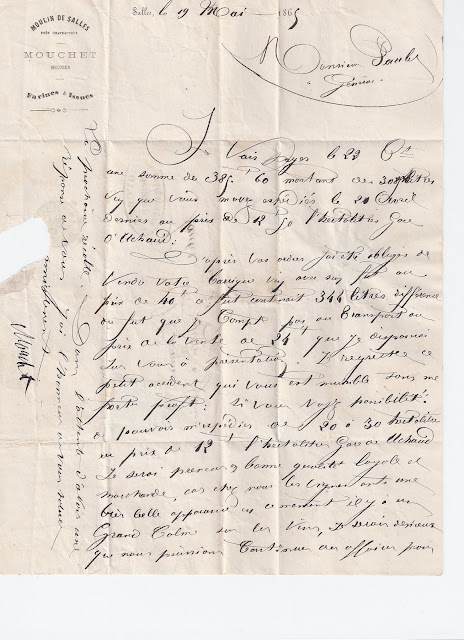 MOULIN DE SALLES
PRÈS
MOUCHET
Farines & Issues
Salles, le 19 Mai 1865
Monsieur Paul
à Générac
Je Vais payer le 22 Ct
une somme de 385f 60 montant de litres
Vin que vous m'avez expédiés le 20 Avril
dernier au prix de 12f 50 l'hectolitre Gare
d'Uchaud.
D'après vos ordres j'ai été obligé de
Vendre Votre Barrique Vin avec son fut au
prix de 40f le fut contenait 344 litres différence
du fut que je Compte pas au transport au
prix de la Vente de 24f que je
sur vous à présentation. Je regrette ce
petit accident qui vous est nuisible sans me
porter profit. Si vous voyez possibilité
de pouvoir m'expédier de 20 à 30 hectolitres
au prix de 12f l'hectolitre Gare de Uchaud
Je serai preneur, bonne qualité loyale et
marchande, car chez nous les vignes ont une
très belle apparence et cement il y a un
Grand Calme sur les Vins, Je serais désireux
que nous puissions Continuer des affaires pour
la prochaine récolte. Dans l'attente d'avoir une
réponse de vous j'ai l'honneur de vous saluer
Mouchet